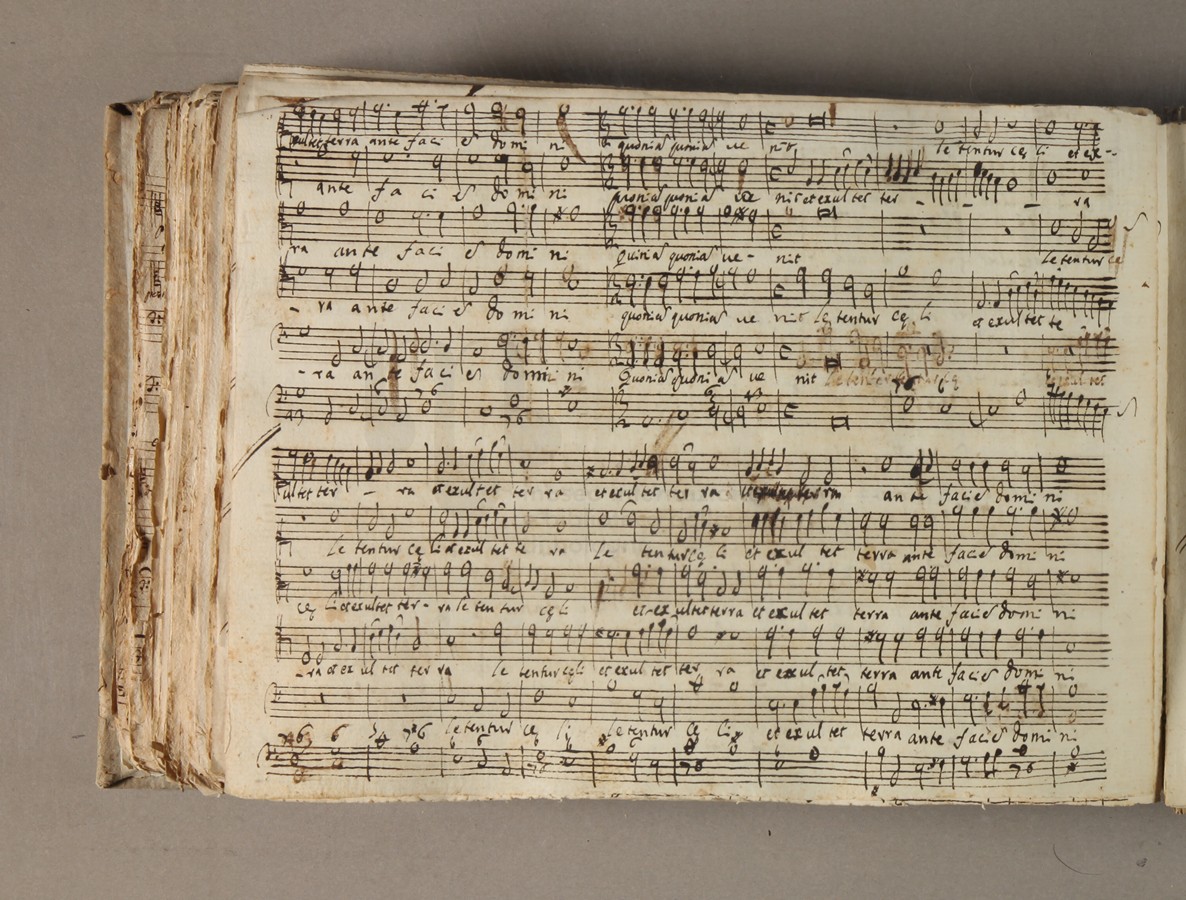 exultet terra ante faci es domi ni quonia quonia ve nit le tentur ce li et ex-
ante fa ci es do mi ni quonia quonia ve nit et exul tet ter - - - ra
ra ante faci es domi ni Quonia quonia ve - nit le tentur ce
- ra ante faci es do mi ni quonia quonia ve nit le tentur ce li et exul tet te
- ra an te faci es domi ni Quonia quoni a ve nit
ultet ter - ra et exul tet ter ra et exul tet ter ra an te facies domi ni
le tentur ce li et exul tet te ra le tentur ce li et exul tet terra ante facies domi ni
ce li et exultet ter - ra le tentur ce li et ex ultet terra et exul tet terra ante facies domi ni
- ra et ex ul tet ter ra le tentur celi et exul tet ter ra et exul tet terra ante facies domi ni
le tentur ce li le tentur ce li et exul tet terra ante facies domi ni